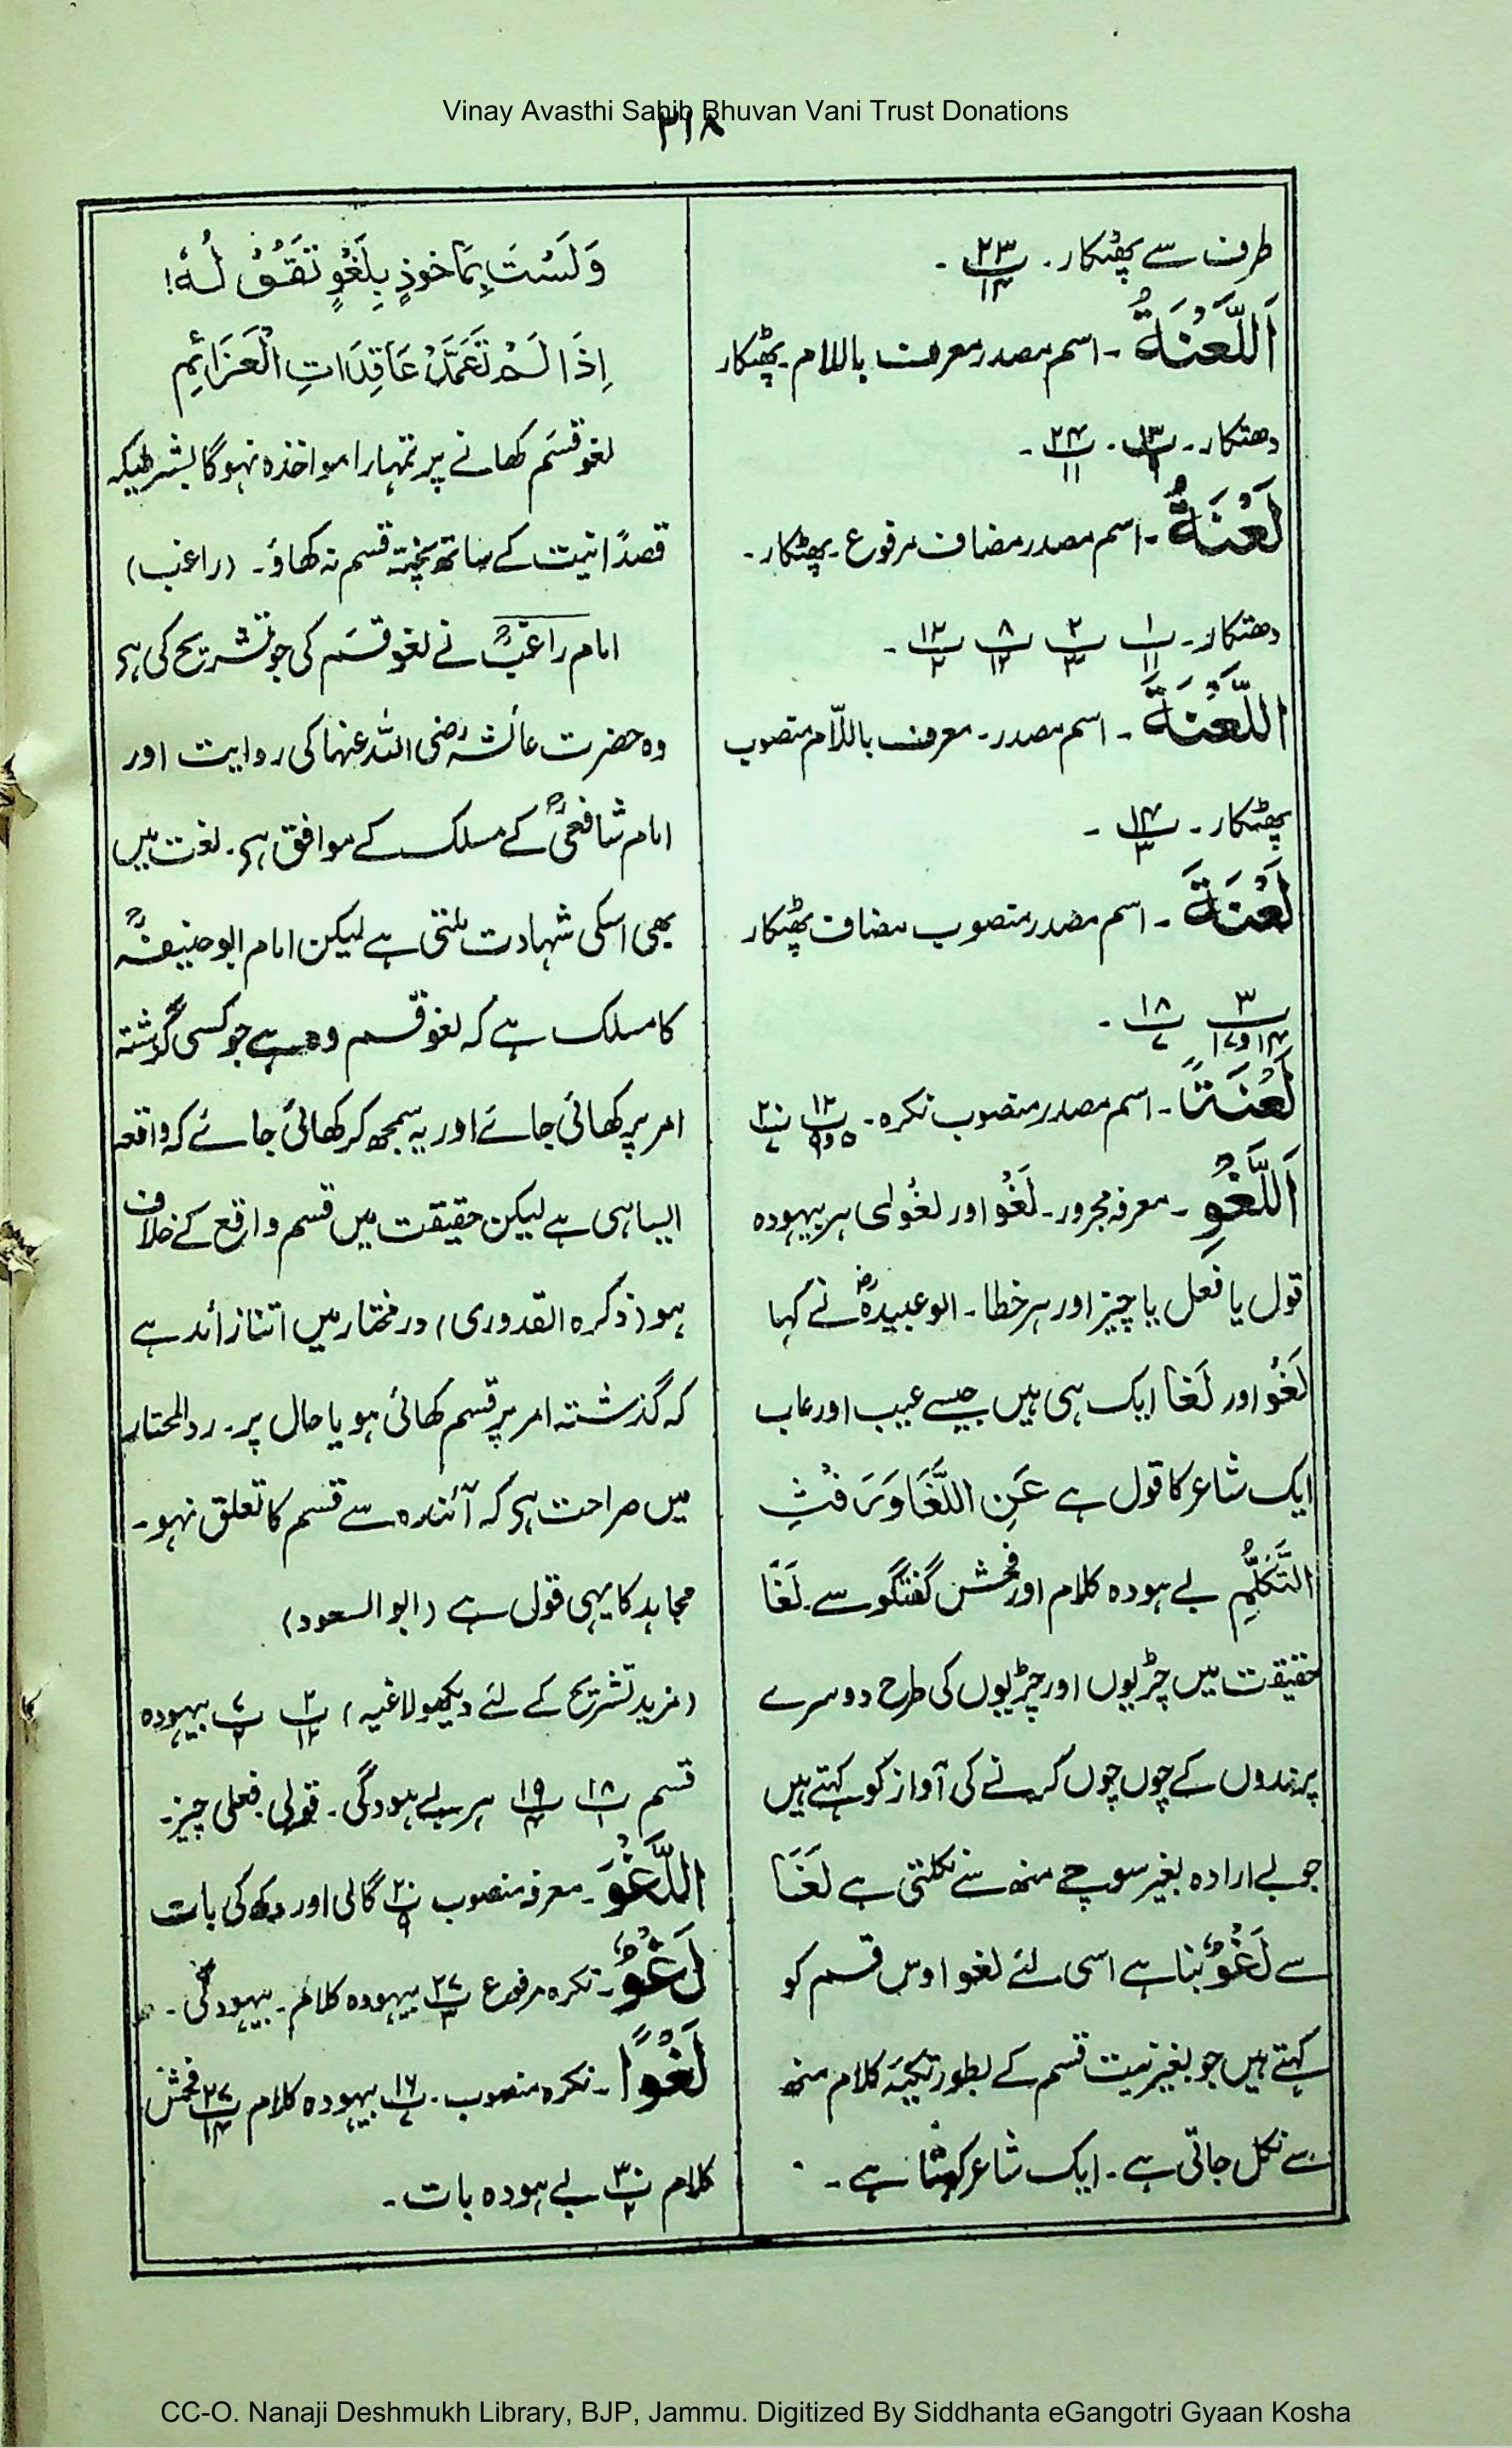 Vinay Avasthi Sahib Bhuvan Vani Trust Donations
۳۱۸
طرف سے پھٹکار۔ پ۲۳/۱۴۔
اَللَّعْنَةُ ۔ اسم مصدر معرف باللام پھٹکار
دھتکار۔ پ۱۳/۹۔ پ۲۴/۱۱۔
لَعْنَةُ ۔ اسم مصدر مضاف مرفوع۔ پھٹکار۔
دھتکار۔ پ۱/۱۱ پ۲/۳ پ۸/۱۲ پ۱۲/۲۔
اللَّعْنَةَ ۔ اسم مصدر۔ معرف باللّام منصوب
پھٹکار۔ پ۱۴/۳۔
لَعْنَةَ ۔ اسم مصدر منصوب مضاف پھٹکار
پ۳/۱۴و۱۷ پ۱۸/۷۔
لَعْنَةً ۔ اسم مصدر منصوب نکرہ۔ پ۱۲/۵و۹ پ۲۰/۷
اَللَّغْوِ ۔ معرفہ مجرور۔ لَغْو اور لغْوٰی ہر بیہودہ
قول یا فعل یا چیز اور ہر خطا۔ ابو عبیدہؓ نے کہا
لَغْو اور لَغَا ایک ہی ہیں جیسے عیب اور عاب
ایک شاعر کا قول ہے عَنِ اللَّغَا وَرَفَثِ
التَّكَلُّمِ بے ہودہ کلام اور فحش گفتگو سے۔ لَغَا
حقیقت میں چڑیوں اور چڑیوں کی طرح دوسرے
پرندوں کے چوں چوں کرنے کی آواز کو کہتے ہیں
جو بے ارادہ بغیر سوچے منھ سے نکلتی ہے لَغَا
سے لَغْوٌ بنا ہے اسی لئے لغو اوس قسم کو
کہتے ہیں جو بغیر نیت قسم کے بطور تکیۂ کلام منھ
سے نکل جاتی ہے۔ ایک شاعر کہتا ہے۔
وَلَسْتَ بِمَاخُوذٍ بِلَغْوٍ تَقُوْلُهٗ!
اِذَا لَمْ تَعَمَّدْ عَاقِدَاتِ الْعَزَائِمِ
لغو قسم کھانے پر تمہارا مواخذہ نہوگا بشرطیکہ
قصدًا نیت کے ساتھ پختہ قسم نہ کھاؤ۔ (راغب)
امام راغبؒ نے لغو قسم کی جو تشریح کی ہر
وہ حضرت عائشہ رضی اللہ عنہا کی روایت اور
امام شافعیؒ کے مسلک کے موافق ہر۔ لغت میں
بھی اسکی شہادت ملتی ہے لیکن امام ابوحنیفہؒ
کا مسلک ہے کہ لغو قسم وہ ہے جو کسی گزشتہ
امر پر کھائی جائے اور یہ سمجھ کر کھائی جائے کہ واقعہ
ایسا ہی ہے لیکن حقیقت میں قسم واقع کے خلاف
ہو (ذکرہ القدوری) درمختار میں اتنا زائد ہے
کہ گذشتہ امر پر قسم کھائی ہو یا حال پر۔ ردالمحتار
میں صراحت ہر کہ آئندہ سے قسم کا تعلق نہو۔
مجاہد کا یہی قول ہے (ابو السعود)
(مزید تشریح کے لئے دیکھو لاغیہ) پ۲/۱۲ پ۷/۲ بیہودہ
قسم پ۱۸/۱ پ۱۹/۴ ہر بے ہودگی۔ قولی فعلی چیز۔
اللَّغْوَ ۔ معرفہ منصوب پ۲۰/۹ گالی اور دکھ کی بات
لَغْوٌ ۔ نکرہ مرفوع پ۲۷/۳ بیہودہ کلام۔ بیہودگی۔
لَغْوًا ۔ نکرہ منصوب۔ پ۱۶/۷ بیہودہ کلام پ۲۷/۱۴ فحش
کلام پ۳۰/۲ بے ہودہ بات۔
CC-O. Nanaji Deshmukh Library, BJP, Jammu. Digitized By Siddhanta eGangotri Gyaan Kosha